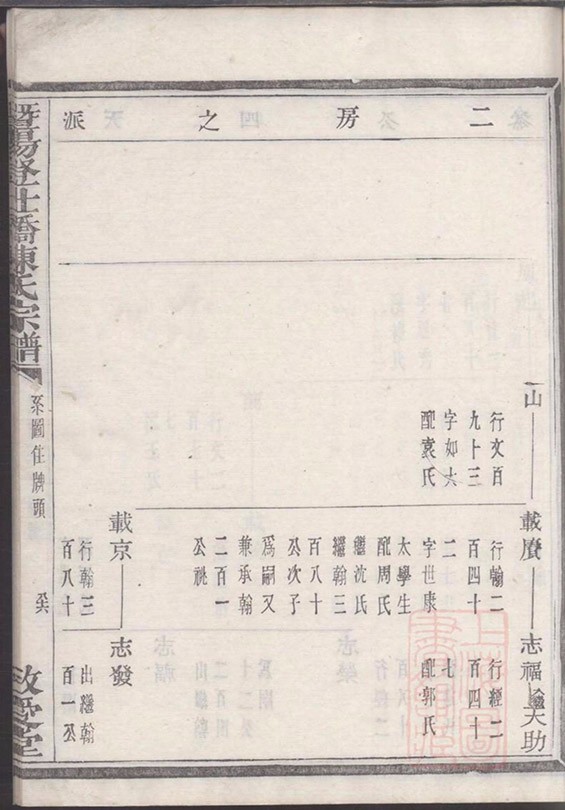 二房之派
山
行文百
九十三
字如大
配袁氏
載賡
行翰二
百四十
二
字世康
太學生
配周氏
繼沈氏
繼翰三
百八十
公次子
為嗣又
兼承翰
二百一
公祧
志福
行經二
百四十
七
配郭氏
天助
載京
行翰三
百八十
志發
出繼翰
百一公
暨陽
橋陳氏宗譜
系圖住牌頭
敬愛堂